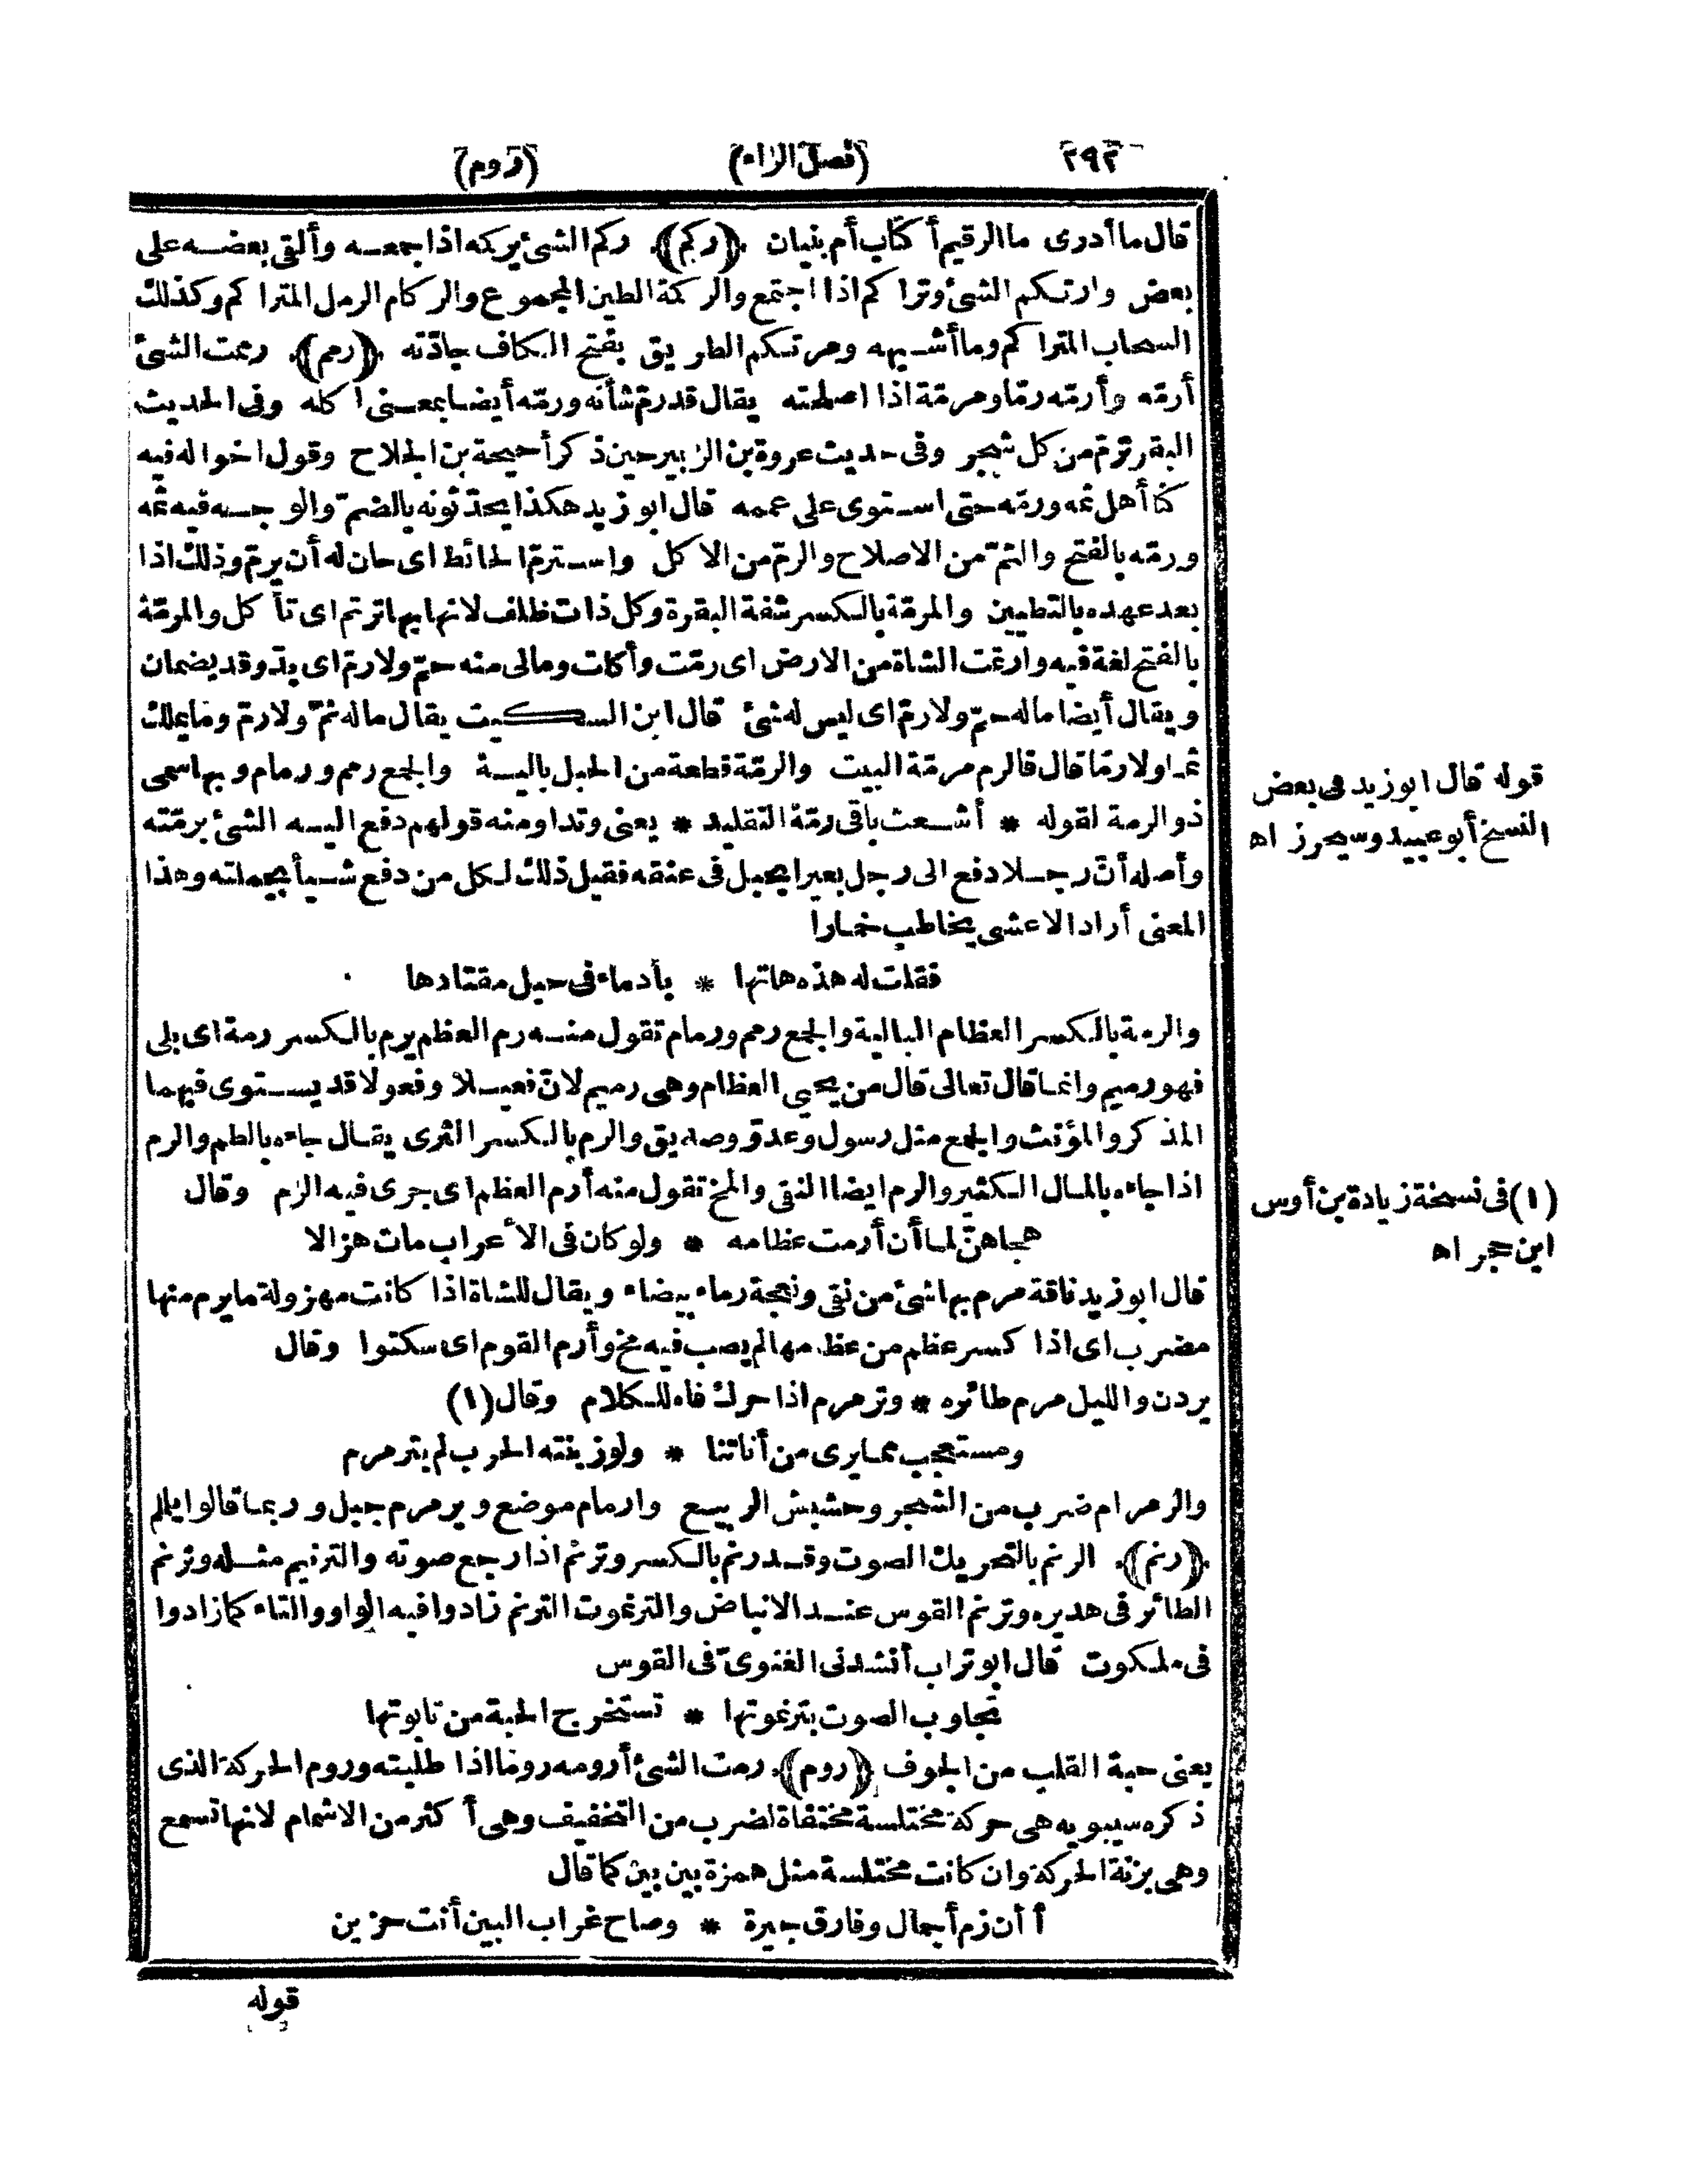 ٢٩٢ (فصل الراء) (روم)
قال ما أدرى ما الرقيم أكتاب أم بنيان ﴿ركم﴾ ركم الشئ يركمه اذا جمعه وألقى بعضه على
بعض وارتكم الشئ وتراكم اذا اجتمع والركمة الطين المجموع والركام الرمل المتراكم وكذلك
السحاب المتراكم وما أشبهه ومرتكم الطريق بفتح الكاف جادّته ﴿رمم﴾ رممت الشئ
أرمّه وأرمّه رمّا ومرمّة اذا اصلحته يقال قد رمّ شأنه ورمّه أيضا بمعنى اكله وفى الحديث
البقر ترمّ من كل شجر وفى حديث عروة بن الزبير حين ذكر أحيحة بن الجلاح وقول اخواله فيه
كنّا أهل ثمّه ورمّه حتى استوى على عممه قال ابو زيد هكذا يحدّثونه بالضمّ والوجه فيه ثمّه
ورمّه بالفتح والثمّ من الاصلاح والرمّ من الاكل واسترمّ الحائط اى حان له أن يرمّ وذلك اذا
بعد عهده بالتطيين والمرمّة بالكسر شفة البقرة وكل ذات ظلف لانها بها ترتم اى تأكل والمرمّة
بالفتح لغة فيه وارتمّت الشاة من الارض اى رمّت وأكلت ومالى منه حمّ ولا رمّ اى بدّ وقد يضمان
ويقال أيضا ماله حمّ ولا رمّ اى ليس له شئ قال ابن السكيت يقال ماله ثمّ ولا رمّ وما يملك
ثمّا ولا رمّا قال فالرم مرمّة البيت والرمّة قطعة من الحبل بالية والجمع رمم ورمام وبها سمى
ذو الرمة لقوله * أشعث باقى رمّة التقليد * يعنى وتدا ومنه قولهم دفع اليه الشئ برمّته
وأصله أنّ رجلا دفع الى رجل بعيرا بحبل فى عنقه فقيل ذلك لكل من دفع شيأ بجملته وهذا
المعنى أراد الاعشى يخاطب خمارا
فقلت له هذه هاتها * بأدماء فى حبل مقتادها
والرمة بالكسر العظام البالية والجمع رمم ورمام تقول منه رم العظم يرم بالكسر رمة اى بلى
فهو رميم وانما قال تعالى قال من يحيي العظام وهى رميم لانّ فعيلا وفعولا قد يستوى فيهما
المذكر والمؤنث والجمع مثل رسول وعدوّ وصديق والرم بالكسر الثرى يقال جاءه بالطم والرم
اذا جاءه بالمال الكثير والرم ايضا النقى والمخ تقول منه أرم العظم اى جرى فيه الرم وقال
هجاهنّ لما أن أرمت عظامه * ولو كان فى الأعراب مات هزالا
قال ابو زيد ناقة مرم بها شئ من نقى ونعجة رماء بيضاء ويقال للشاة اذا كانت مهزولة ما يرم منها
مضرب اى اذا كسر عظم من عظامها لم يصب فيه مخ وأرم القوم اى سكتوا وقال
يردن والليل مرم طائره * وترمرم اذا حرك فاه للكلام وقال (١)
ومستعجب مما يرى من أناتنا * ولو زبنته الحرب لم يترمرم
والرمرام ضرب من الشجر وحشيش الربيع وارمام موضع ويرمرم جبل وربما قالوا يلملم
﴿رنم﴾ الرنم بالتحريك الصوت وقد رنم بالكسر وترنم اذا رجع صوته والترنيم مثله وترنم
الطائر فى هديره وترنم القوس عند الانباض والترنموت الترنم زادوا فيه الواو والتاء كما زادوا
فى ملكوت قال ابو تراب أنشدنى الغنوىّ فى القوس
تجاوب الصوت بترنموتها * تستخرج الحبة من تابوتها
يعنى حبة القلب من الجوف ﴿روم﴾ رمت الشئ أرومه روما اذا طلبته وروم الحركة الذى
ذكره سيبويه هى حركة مختلسة مختفاة لضرب من التخفيف وهى أكثر من الاشمام لانها تسمع
وهى بزنة الحركة وان كانت مختلسة مثل همزة بين بين كما قال
أأن زم أجمال وفارق جيرة * وصاح غراب البين أنت حزين
قوله
قوله قال ابو زيد فى بعض
النسخ أبو عبيد وسيحرر اه
(١) فى نسخة زيادة بن أوس
ابن حجر اه